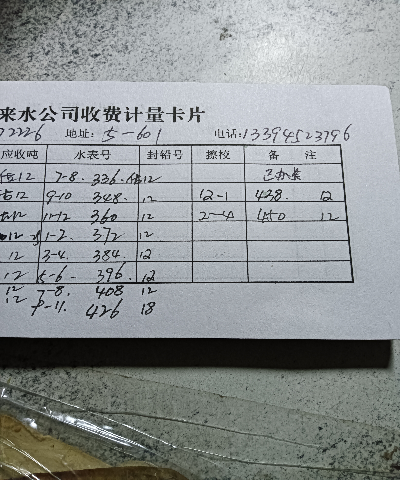 来水公司收费计量卡片
72226 地址: 5-601 电话: 13394523796
应收吨 水表号 封铅号 擦校 备注
12 7-8. 336. 估12 已办卡
估12 9-10 348. 12 12-1 438. 12
12 11-12 360 12 2-4 450 12
12 1-2. 372 12
12 3-4. 384. 12
12 5-6. 396. 12
12 7-8. 408 12
12 9-11. 426 18